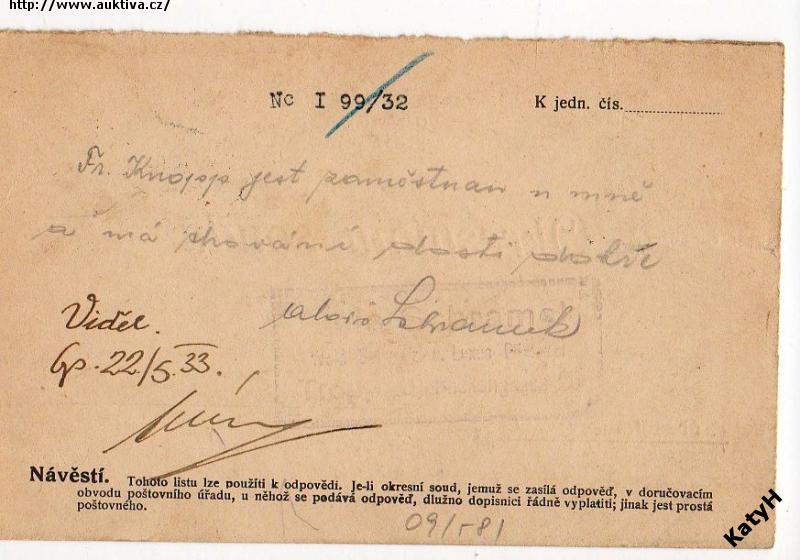 http://www.auktiva.cz/
Nc I 99/32
K jedn. čís.
Fr. Knopp jest zaměstnán u mně
a má chování dosti dobře
Alois Schramek
Viděl.
22/5.33.
Návěstí. Tohoto listu lze použíti k odpovědi. Je-li okresní soud, jemuž se zasílá odpověď, v doručovacím
obvodu poštovního úřadu, u něhož se podává odpověď, dlužno dopisnici řádně vyplatiti; jinak jest prostá
poštovného.
KatyH